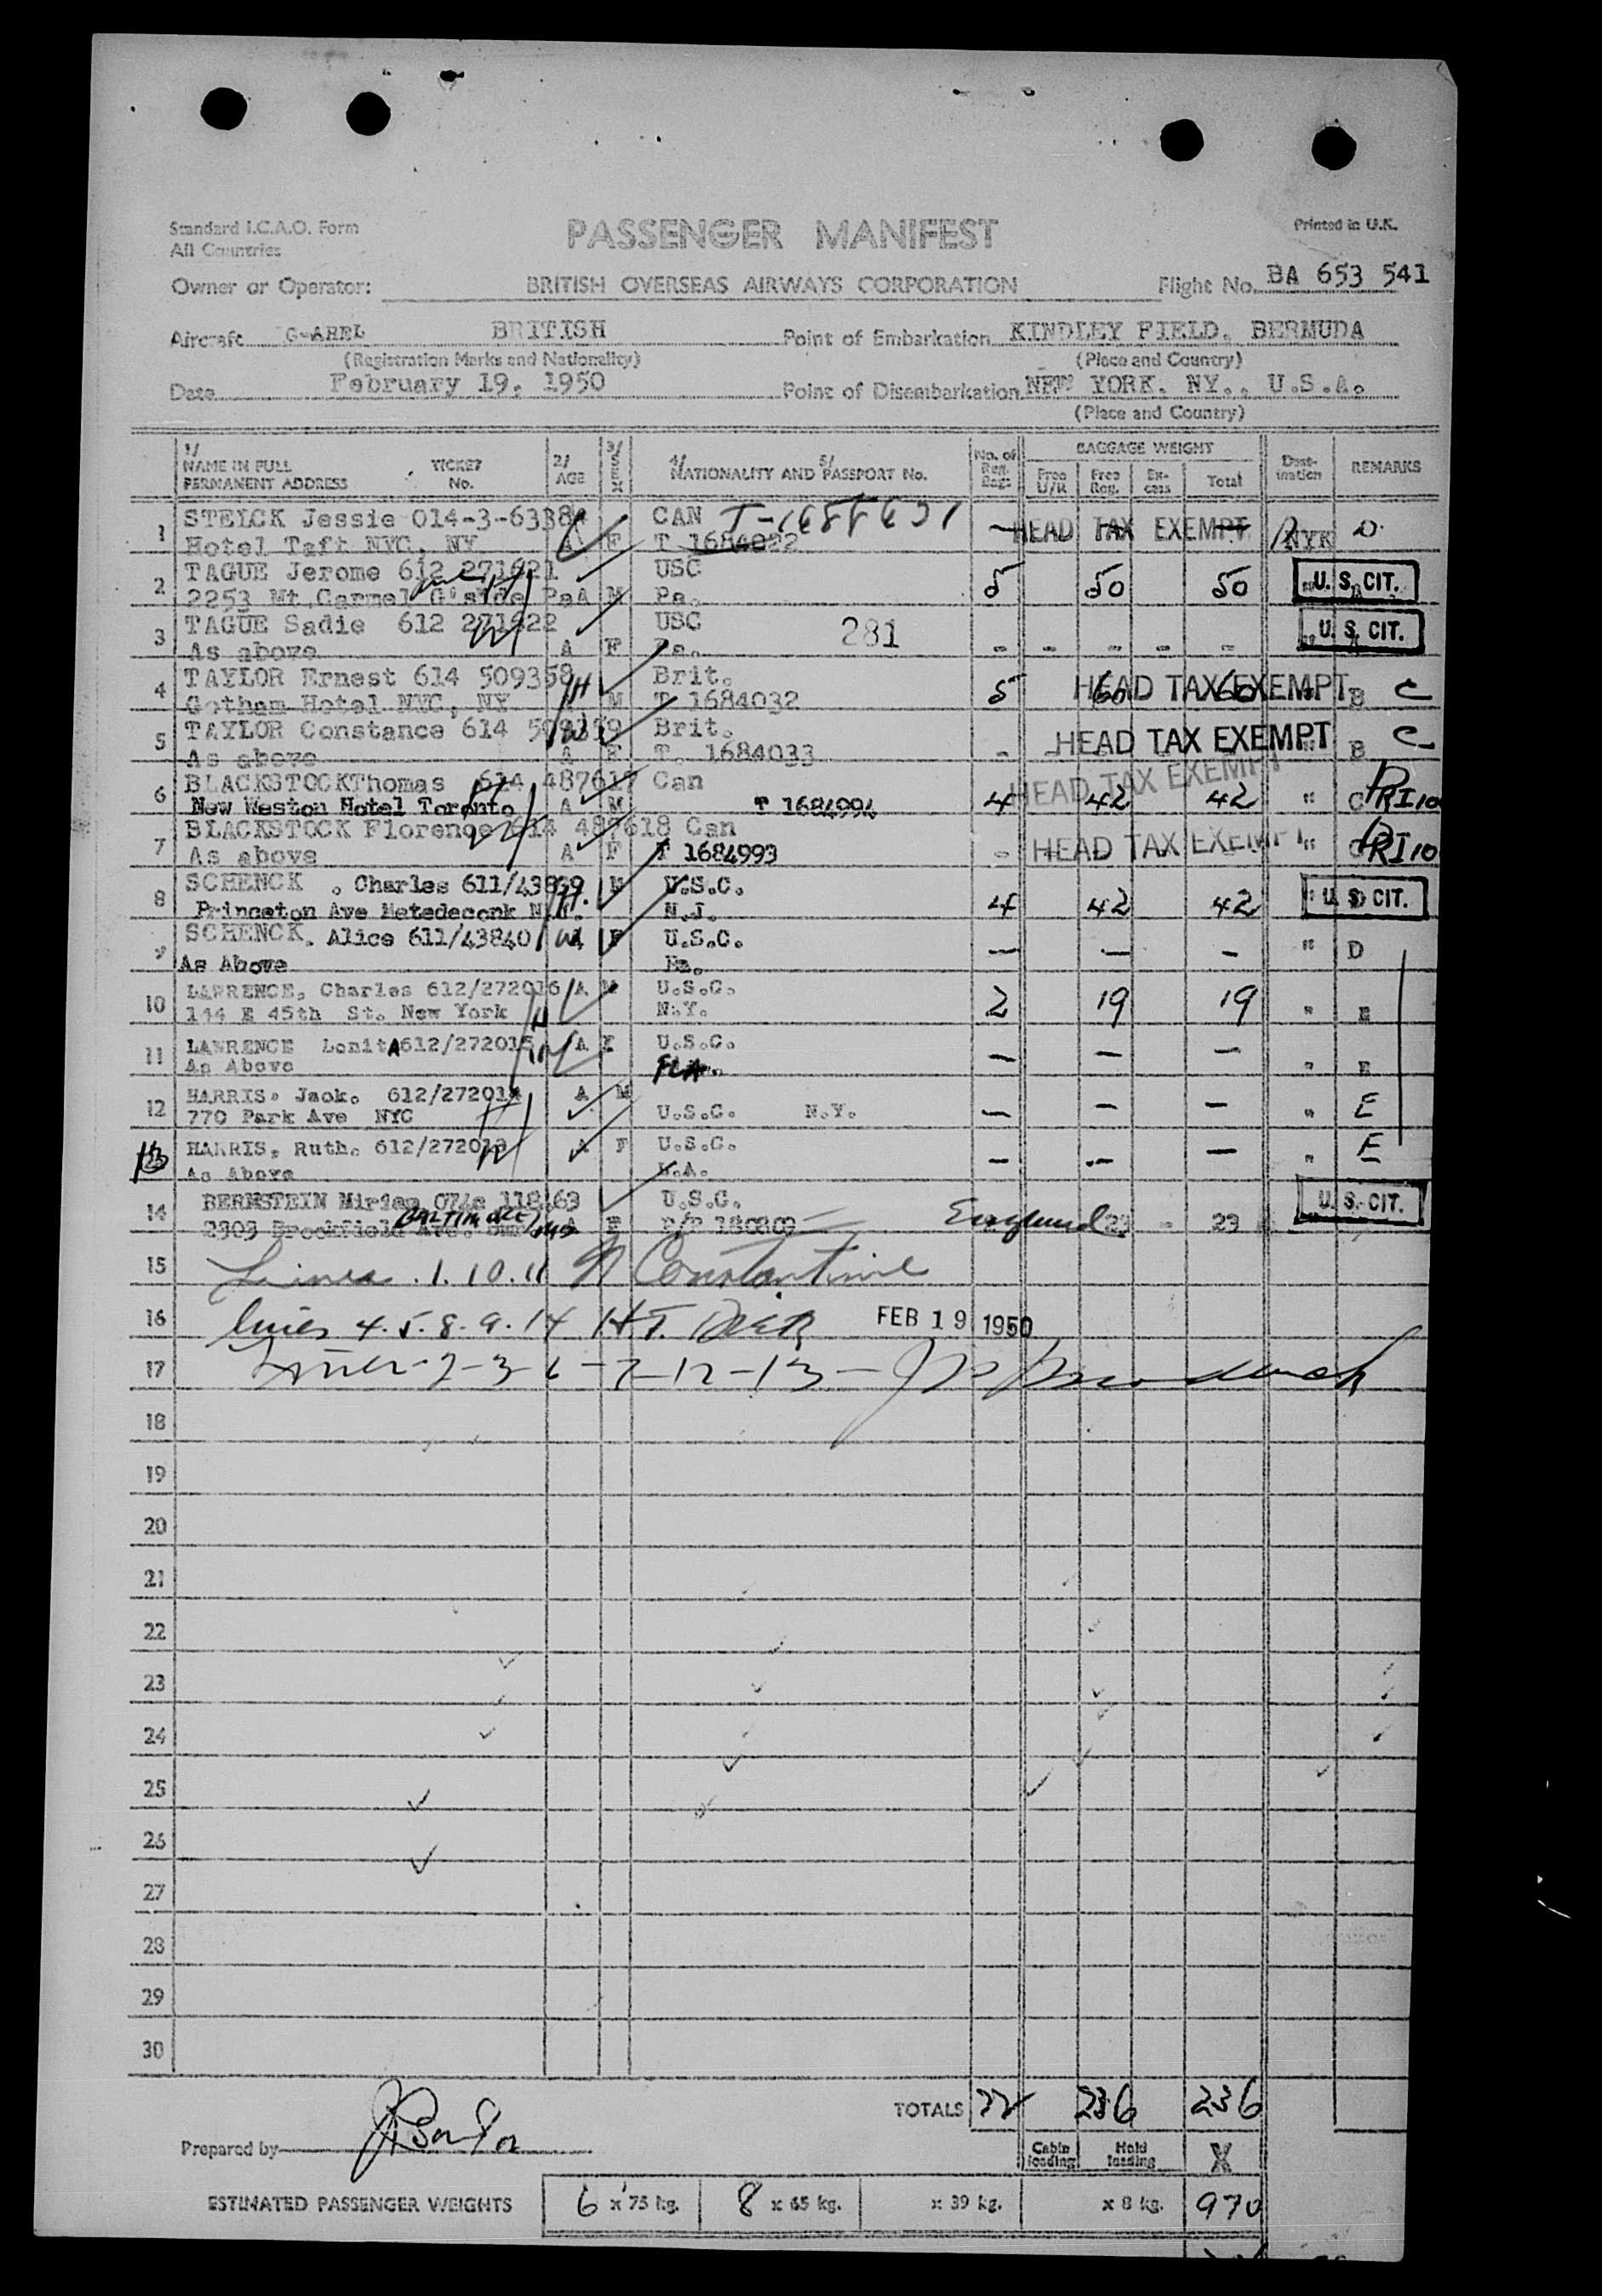 Standard I.C.A.O. Form
All Countries
PASSENGER MANIFEST
Printed in U.K.
Owner or Operator: BRITISH OVERSEAS AIRWAYS CORPORATION Flight No. BA 653 541
Aircraft BRITISH Point of Embarkation KINDLEY FIELD. BERMUDA
(Registration Marks and Nationality) (Place and Country)
Date February 19, 1950 Point of Disembarkation NEW YORK. NY., U.S.A.
(Place and Country)
1/ NAME IN FULL PERMANENT ADDRESS TICKET No. 2/ AGE 3/ SEX 4/ NATIONALITY AND 5/ PASSPORT No. No. of Reg. Bags BAGGAGE WEIGHT Free U/R Free Reg. Ex-cess Total Dest-ination REMARKS
1 STELCK Jessie 014-3-6338 CAN HEAD TAX EXEMPT NYK
Hotel Taft NYC, NY A F T 1684022
2 TAGUE Jerome 612 271621 USC 5 50 50 U. S. CIT.
2253 Mt.Carmel G'side Pa A M Pa.
3 TAGUE Sadie 612 271622 USC 281 U. S. CIT.
As above A F Pa. - - - - -
4 TAYLOR Ernest 614 509358 Brit. 5 60 HEAD TAX EXEMPT 60 " B C
Gotham Hotel NYC, NY M T 1684032
5 TAYLOR Constance 614 509359 Brit. - HEAD TAX EXEMPT " B C
As above A F T. 1684033
6 BLACKSTOCK Thomas 614 487617 Can HEAD TAX EXEMPT
New Weston Hotel Toronto A M T 1684994 4 42 42 " C PRI 10
7 BLACKSTOCK Florence 614 487618 Can
As above A F T 1684993 - HEAD TAX EXEMPT " C PRI 10
8 SCHENCK . Charles 611/43839 M U.S.C.
Princeton Ave Metedeconk N.J. N.J. 4 42 42 " U. S. CIT.
9 SCHENCK. Alice 611/43840 A F U.S.C. — — — " D
As Above Pa.
10 LAWRENCE, Charles 612/272016 A M U.S.C. 2 19 19 " E
144 E 45th St. New York N.Y.
11 LAWRENCE LenitA 612/272015 A F U.S.C. — — — " E
As Above FLA.
12 HARRIS. Jack. 612/272014 A M
770 Park Ave NYC U.S.C. N.Y. — — — " E
13 HARRIS, Ruth. 612/272013 A F U.S.C. — — — " E
As Above
14 BERNSTEIN Miriam 118163 U.S.C. U. S. CIT.
2303 Brookfield Ave. BALTIMORE MD A F P/P England 23 - 23
15 Lines . 1. 10. 11 Constantine
16 lines 4. 5. 8. 9. 14 FEB 19 1950
17 Lines 2-3 6-7-12-13-
18
19
20
21
22
23
24
25
26
27
28
29
30
TOTALS 22 236 236
Prepared by
Cabin loading Hold loading X
ESTIMATED PASSENGER WEIGHTS 6 x 75 kg. 8 x 65 kg. x 39 kg. x 8 kg. 970